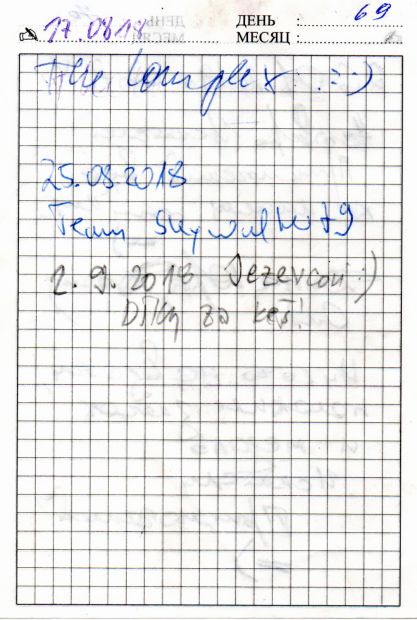 17.0818 ДЕНЬ : 69
МЕСЯЦ :
The Complex :-)
25.08.2018
Team Skywalker79
2.9.2018 Jezevcoii :)
Díky za keš!